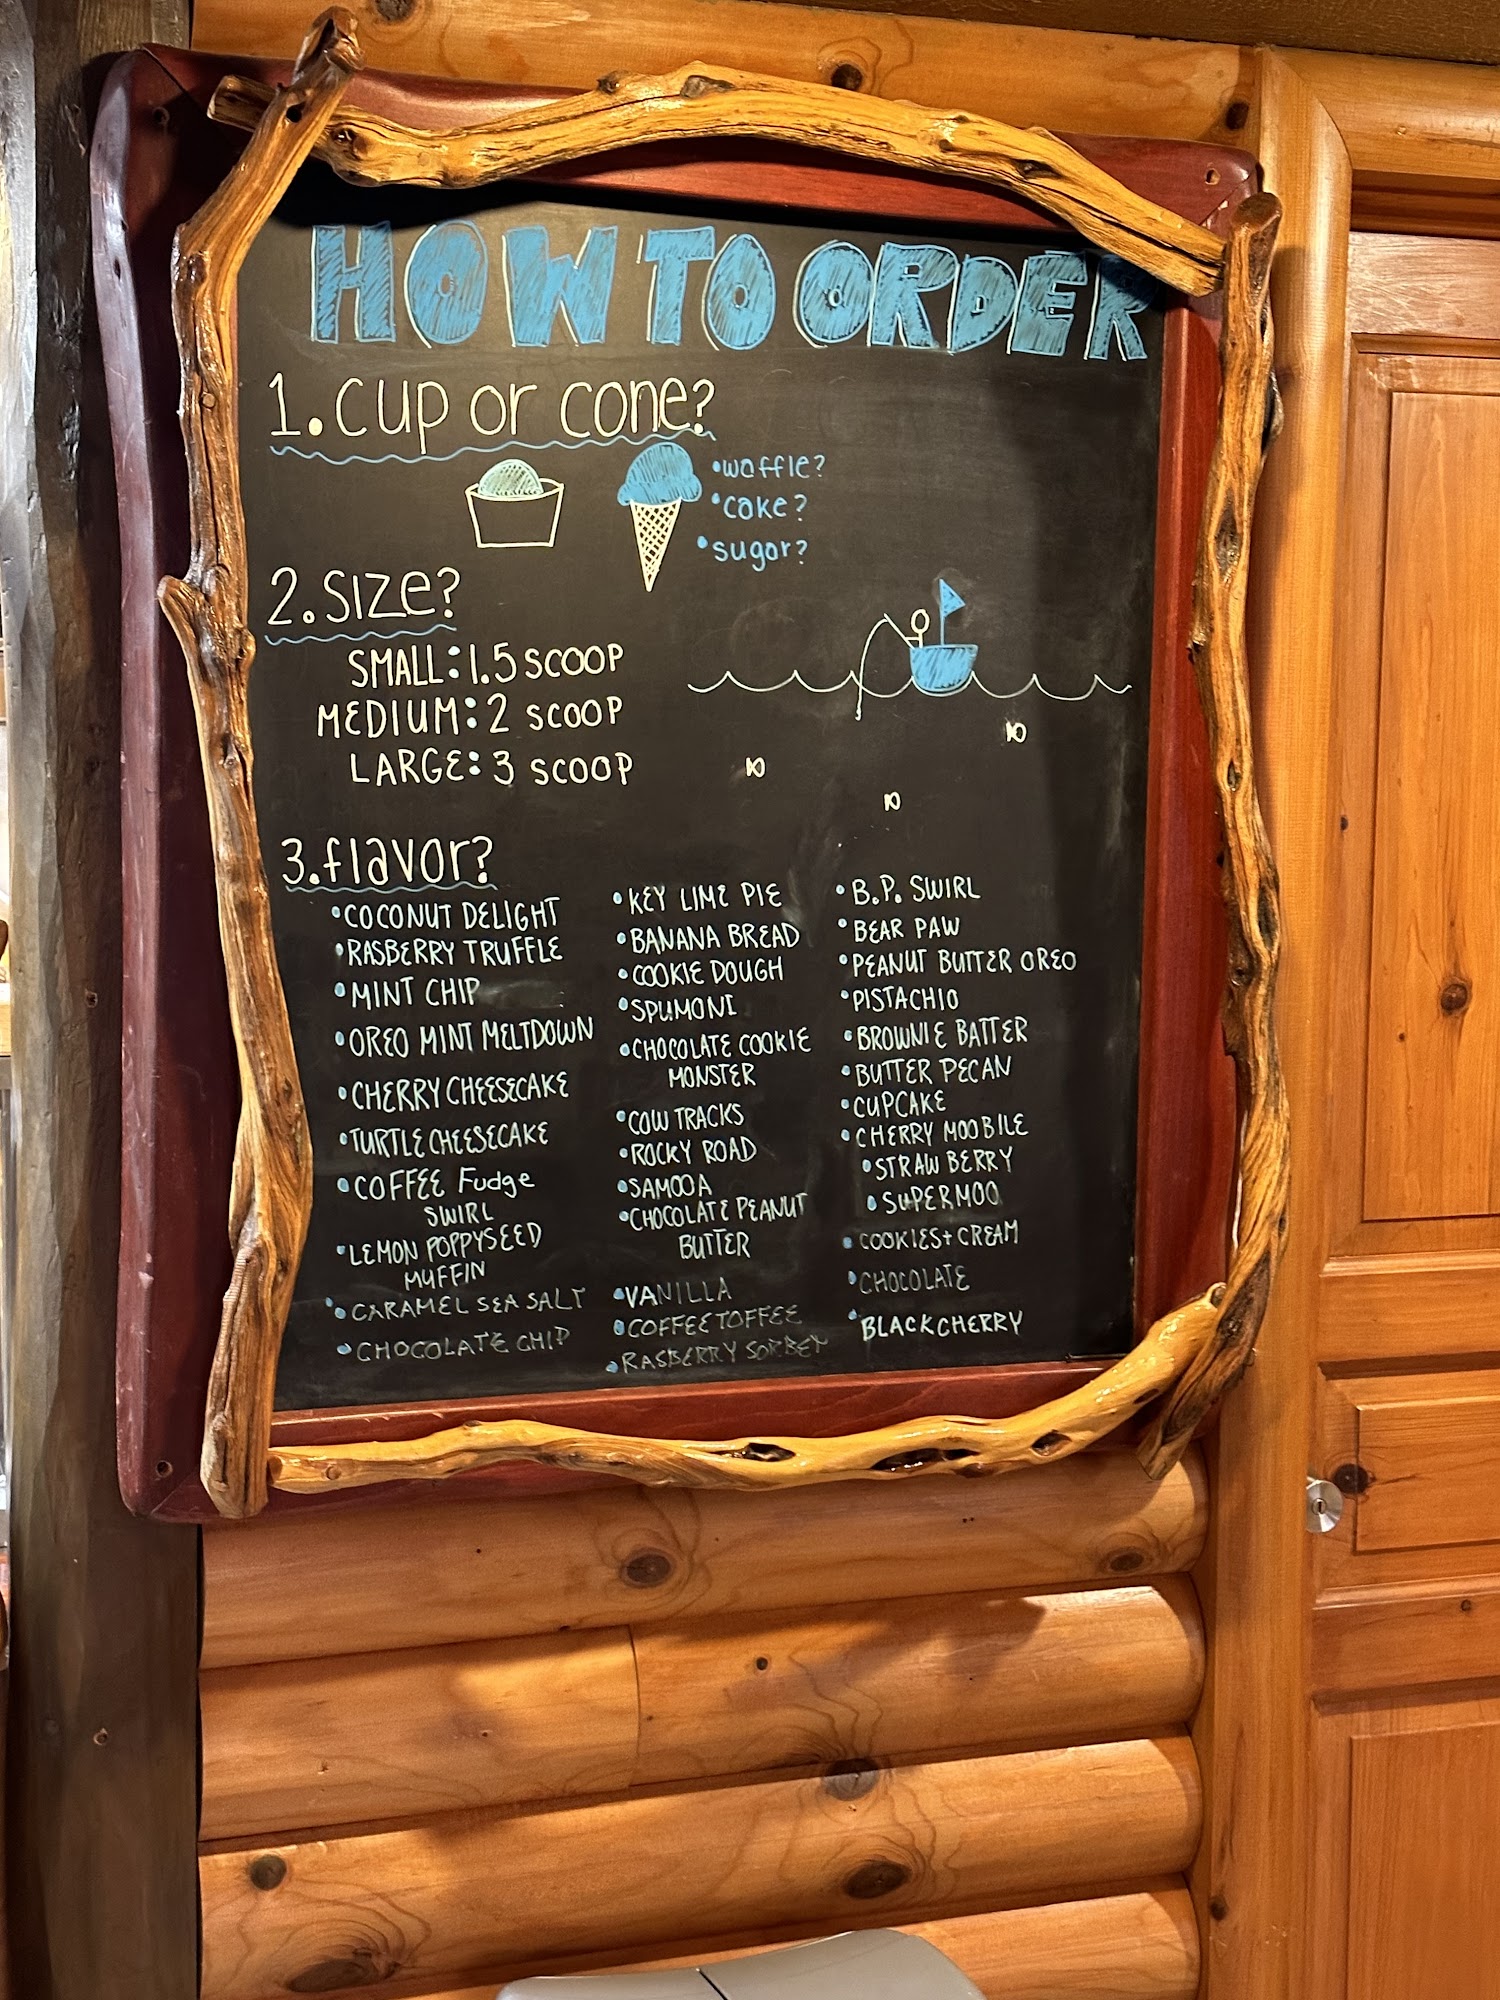 HOW TO ORDER
1. cup or cone?
• waffle?
• cake?
• sugar?
2. SIZE?
SMALL: 1.5 SCOOP
MEDIUM: 2 SCOOP
LARGE: 3 SCOOP
3. flavor?
• COCONUT DELIGHT
• RASBERRY TRUFFLE
• MINT CHIP
• OREO MINT MELTDOWN
• CHERRY CHEESECAKE
• TURTLE CHEESECAKE
• COFFEE Fudge
SWIRL
• LEMON POPPYSEED
MUFFIN
• CARAMEL SEA SALT
• CHOCOLATE CHIP
• KEY LIME PIE
• BANANA BREAD
• COOKIE DOUGH
• SPUMONI
• CHOCOLATE COOKIE
MONSTER
• COW TRACKS
• ROCKY ROAD
• SAMOOA
• CHOCOLATE PEANUT
BUTTER
• VANILLA
• COFFEE TOFFEE
• RASBERRY SORBEY
• B.P. SWIRL
• BEAR PAW
• PEANUT BUTTER OREO
• PISTACHIO
• BROWNIE BATTER
• BUTTER PECAN
• CUPCAKE
• CHERRY MOOBILE
• STRAWBERRY
• SUPERMOO
• COOKIES + CREAM
• CHOCOLATE
• BLACK CHERRY